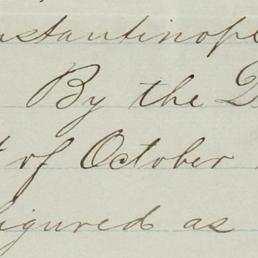 nstantinope
By the D
of October
igured as